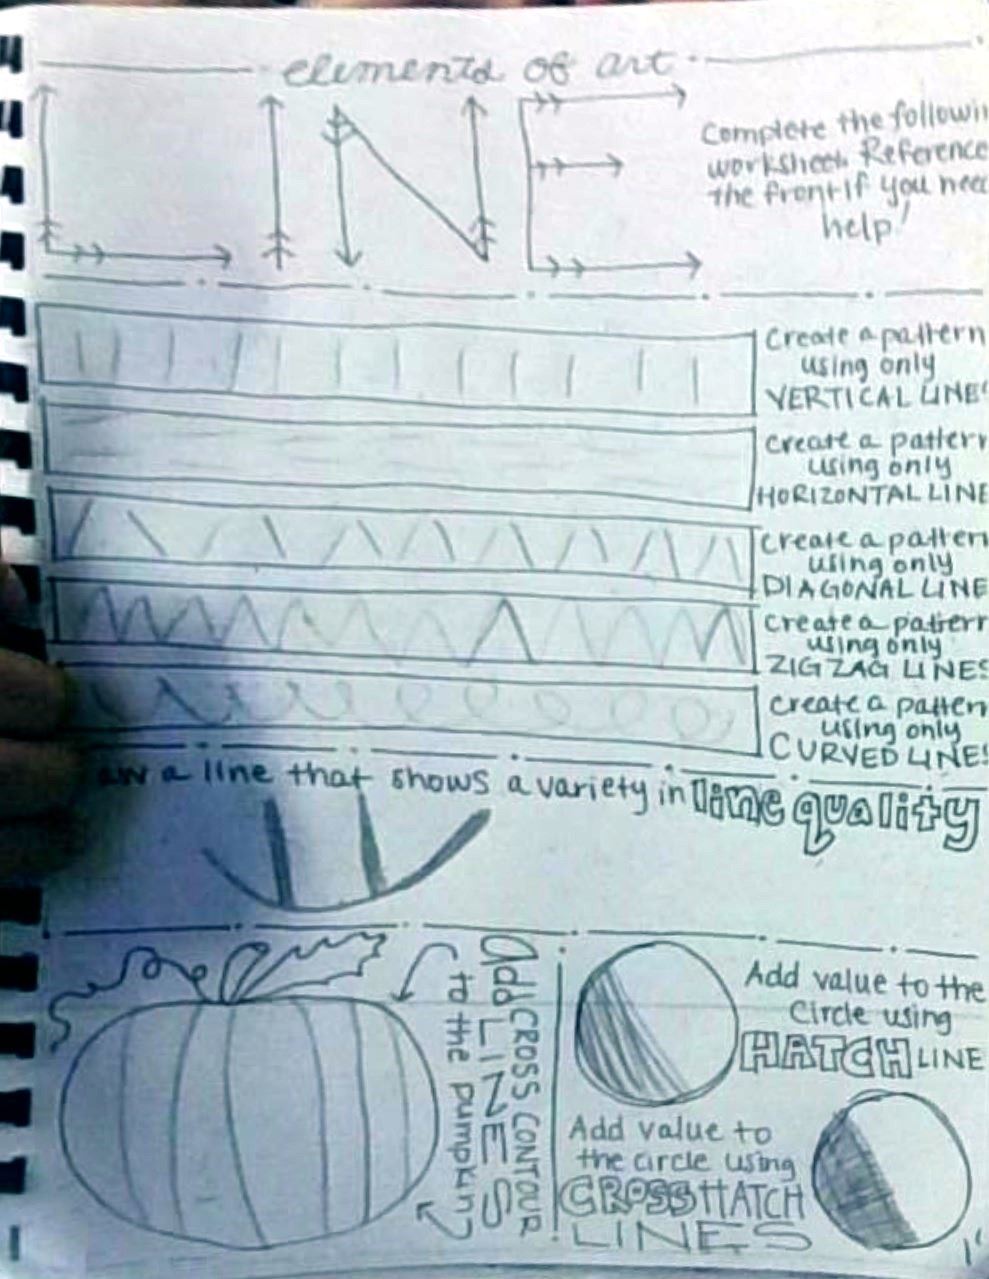 elements of art
LINE
Complete the followin
worksheet. Reference
the front if you need
help!
Create a pattern
using only
VERTICAL LINES
Create a pattern
using only
HORIZONTAL LINE
Create a pattern
using only
DIAGONAL LINE
Create a pattern
using only
ZIGZAG LINES
Create a pattern
using only
CURVED LINES
aw a line that shows a variety in line quality
Add CROSS CONTOUR
LINES
to the pumpkin
Add value to the
Circle using
HATCH LINE
Add value to
the circle using
CROSSHATCH
LINES